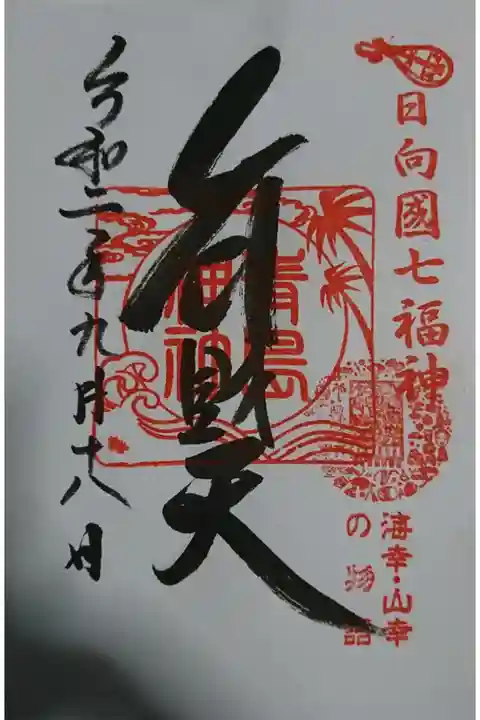 日向國七福神
海幸・山幸
の物語
青島
海神
弁財天
令和二年九月十八日